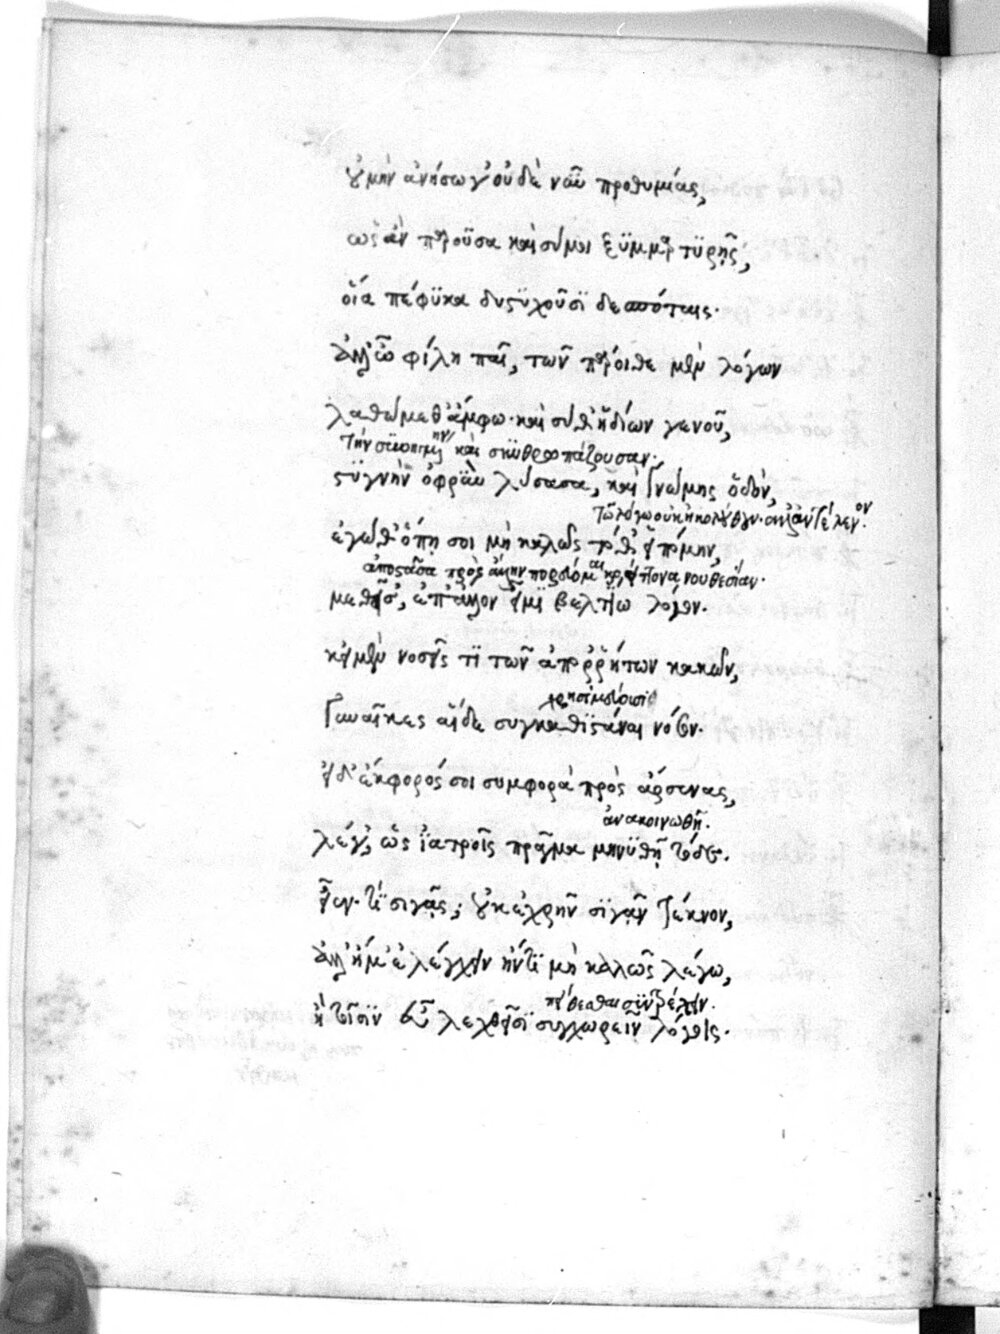 οὐ μὴν ἀνήσω γ' οὐδὲν νῦν προθυμίας,
ὡς ἂν παροῦσα καὶ σύ μοι ξυμμαρτυρῇς,
οἵα πέφυκα δυστυχοῦσι δεσπόταις.
ἀλλ' ὦ φίλη παῖ, τῶν πάροιθε μὲν λόγων
λαθώμεθ' ἄμφω· καὶ σύ θ' ἡδίων γενοῦ,
τὴν καὶ σκυθρωπάζουσαν.
στυγνὴν ὀφρῦν λύσασα, καὶ γνώμης ὁδὸν,
τῷ λόγῳ οὐκ ἠκολούθουν.
ἐγώ θ' ὅπῃ σοι μὴ καλῶς τόθ' εἱπόμην,
ἀποστᾶσα πρὸς νουθεσίαν.
μεθεῖσ', ἐπ' ἄλλον εἶμι βελτίω λόγον.
κεἰ μὲν νοσεῖς τι τῶν ἀπορρήτων κακῶν,
γυναῖκες αἵδε συγκαθιστάναι νόσον.
εἰ δ' ἔκφορός σοι συμφορὰ πρὸς ἄρσενας,
ἀνακοινωθῇ.
λέγ', ὡς ἰατροῖς πρᾶγμα μηνυθῇ τόδε.
εἶεν· τί σιγᾷς; οὐκ ἐχρῆν σιγᾶν τέκνον,
ἀλλ' ἤ μ' ἐλέγχειν ἤν τι μὴ καλῶς λέγω,
ἢ τοῖσιν εὖ λεχθεῖσι συγχωρεῖν λόγοις.